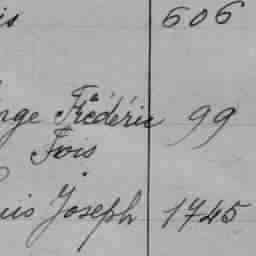 is 606
nge Frédéric 99
Fois
uis Joseph 1745